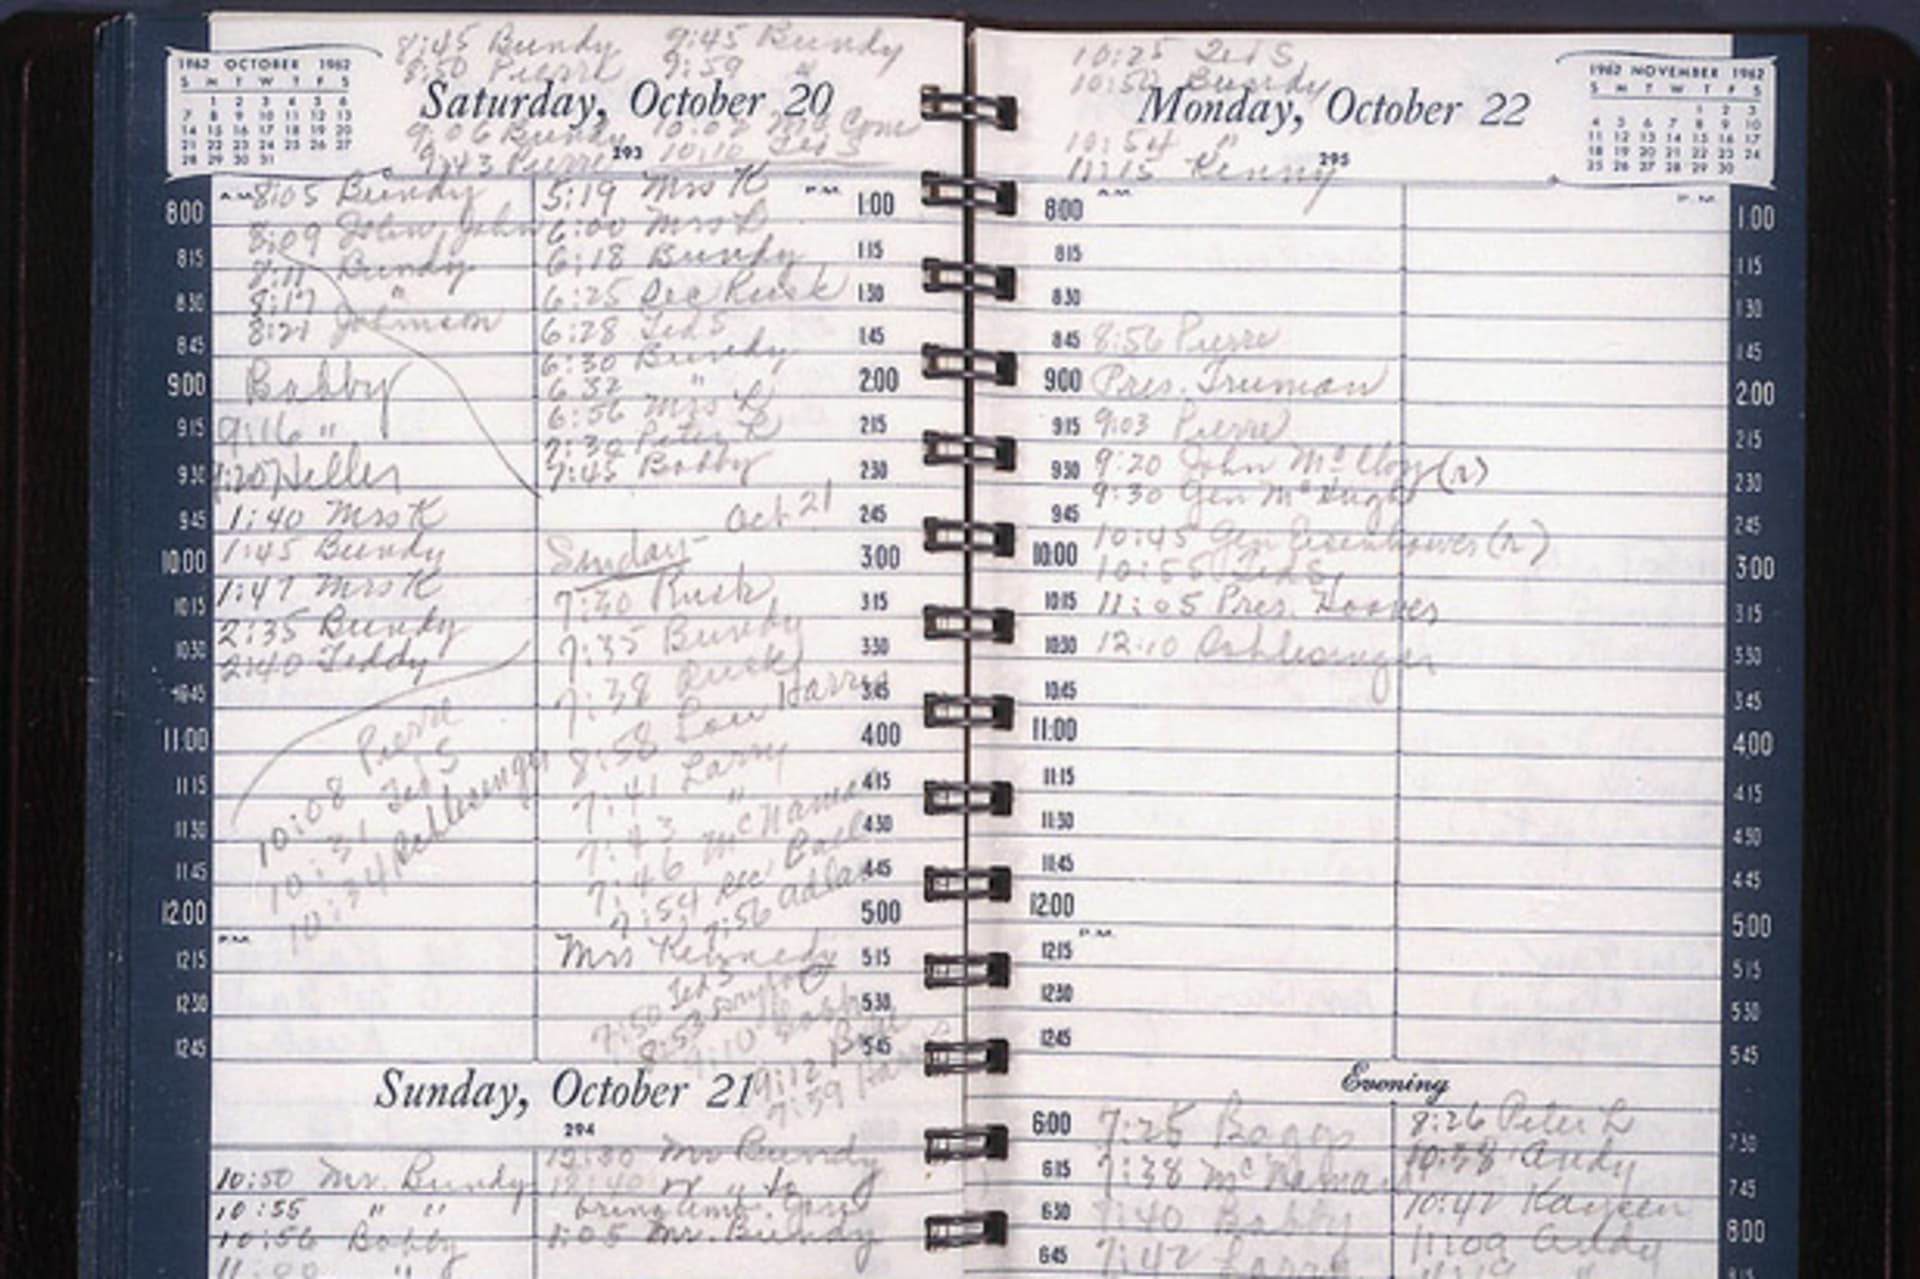 8:45 Bundy 9:45 Bundy
8:50 Pierre 9:59 "
1962 OCTOBER 1962
S M T W T F S
1 2 3 4 5 6
7 8 9 10 11 12 13
14 15 16 17 18 19 20
21 22 23 24 25 26 27
28 29 30 31
Saturday, October 20
9:06 Bundy 10:07
9:43 Pierre 293 10:10 Ted S
A.M. P.M.
8:00 8:05 Bundy 5:19 Mrs K 1:00
8:09 John, John 6:00 Mrs L
8:15 8:11 Bundy 6:18 Bundy 1:15
8:30 8:17 " 6:25 Sec Rusk 1:30
8:21 Johnson 6:28 Ted S
8:45 6:30 Bundy 1:45
9:00 Bobby 6:32 " 2:00
6:56 Mrs L
9:15 9:16 " 7:30 Peter L 2:15
9:30 9:20 Heller 7:45 Bobby 2:30
9:45 1:40 Mrs K Oct 21 2:45
10:00 1:45 Bundy Sunday- 3:00
10:15 1:47 Mrs K 7:30 Rusk 3:15
2:35 Bundy 7:35 Bundy
10:30 2:40 Teddy 7:38 Rusk 3:30
10:45 8:58 Lou Harris 3:45
11:00 10:08 Pierre 7:41 Larry 4:00
11:15 10:31 Ted S 7:43 " 4:15
11:30 10:34 Schlesinger 7:46 McNamara 4:30
11:45 7:54 Sec Ball 4:45
12:00 7:56 Adlai 5:00
P.M.
12:15 Mrs Kennedy 5:15
12:30 7:50 Ted S 5:30
8:53
12:45 9:10 Bobby 5:45
9:12 Ball
Sunday, October 21
7:59 Harris
294
12:30 Mr Bundy
10:50 Mr. Bundy 12:40 " " to
10:55 " " bring Amb. Gore
10:56 Bobby 1:05 Mr. Bundy
11:00 "
10:25 Ted S
10:50 Bundy
Monday, October 22
1962 NOVEMBER 1962
S M T W T F S
1 2 3
4 5 6 7 8 9 10
11 12 13 14 15 16 17
18 19 20 21 22 23 24
25 26 27 28 29 30
10:54 "
11:15 Kenny 295
A.M. P.M.
8:00 1:00
8:15 1:15
8:30 1:30
8:45 8:56 Pierre 1:45
9:00 Pres. Truman 2:00
9:15 9:03 Pierre 2:15
9:30 9:20 John McCloy (r) 2:30
9:30 Gen McHugh
9:45 2:45
10:45 Gen Eisenhower (r)
10:00 10:55 Ted S. 3:00
10:15 11:05 Pres. Hoover 3:15
10:30 12:10 Schlesinger 3:30
10:45 3:45
11:00 4:00
11:15 4:15
11:30 4:30
11:45 4:45
12:00 5:00
P.M.
12:15 5:15
12:30 5:30
12:45 5:45
Evening
6:00 7:25 Boggs 8:26 Peter L 7:30
6:15 7:38 McNamara 10:38 Andy 7:45
6:30 7:40 Bobby 10:42 Kaysen 8:00
6:45 7:42 Larry 11:09 Andy 8:15